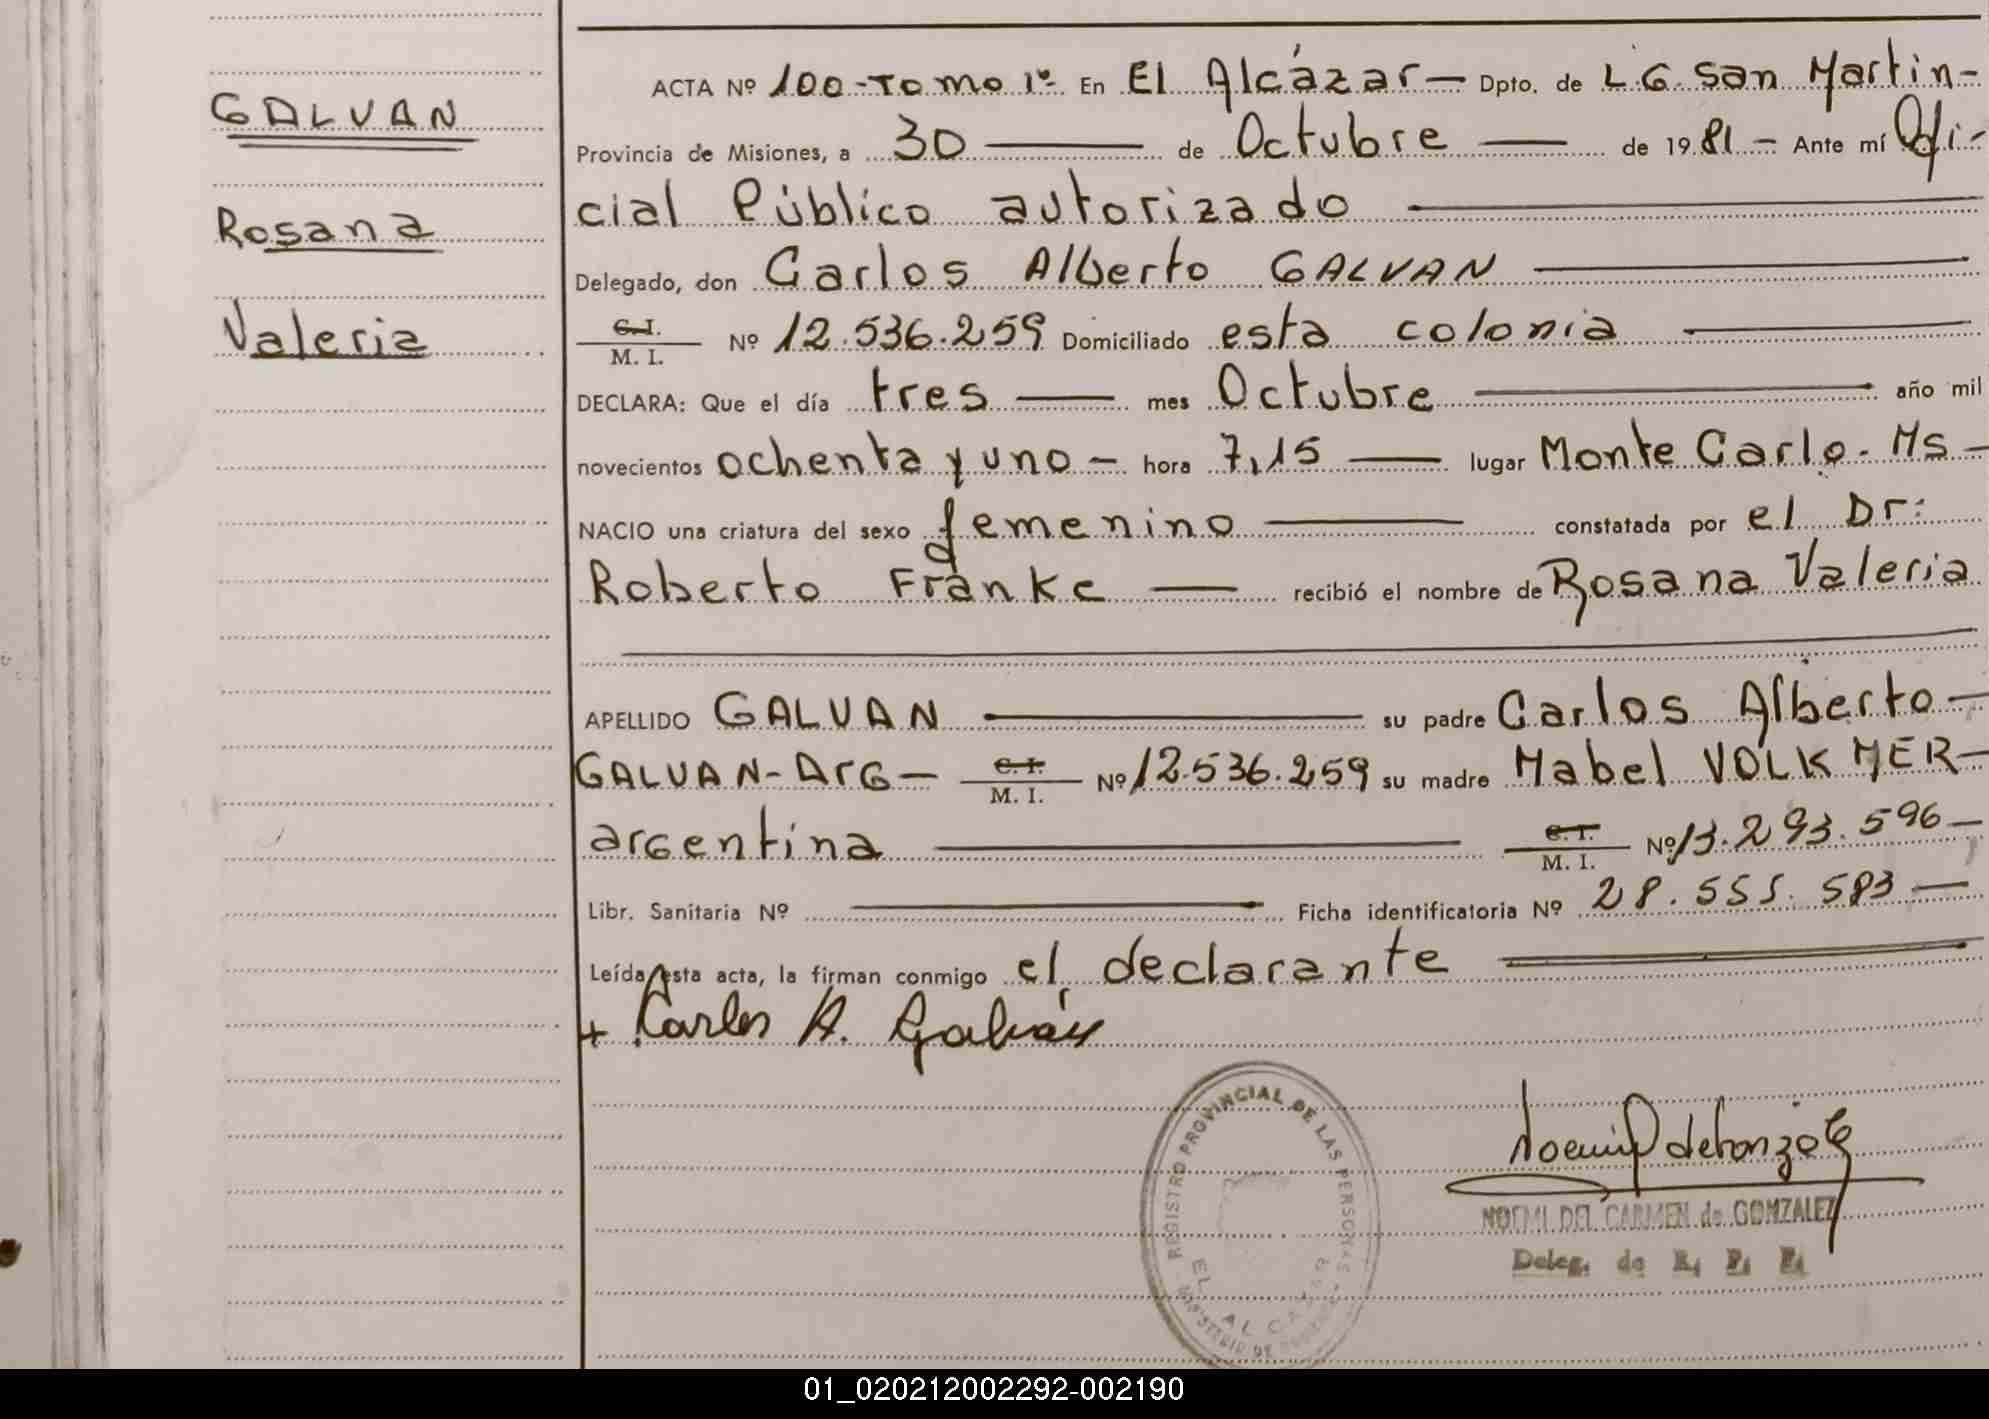 GALVAN
Rosana
Valeria
ACTA Nº 100-Tomo 1º En El Alcázar- Dpto. de L.G. San Martin-
Provincia de Misiones, a 30 de Octubre de 1981 - Ante mí Ofi-
cial Público autorizado
Delegado, don Carlos Alberto GALVAN
C.I.
M. I. Nº 12.536.259 Domiciliado esta colonia
DECLARA: Que el día tres mes Octubre año mil
novecientos ochenta y uno - hora 7,15 lugar Monte Carlo. Ms -
NACIO una criatura del sexo femenino constatada por el Dr:
Roberto Franke recibió el nombre de Rosana Valeria
APELLIDO GALVAN su padre Carlos Alberto -
GALVAN- Arg - C.I.
M. I. Nº 12.536.259 su madre Mabel VOLKMER-
argentina C.I.
M. I. Nº 13.293.596-
Libr. Sanitaria Nº Ficha identificatoria Nº 28.555.583 -
Leída esta acta, la firman conmigo el declarante
+ Carlos A. Galván
REGISTRO PROVINCIAL DE LAS PERSONAS
EL ALCAZAR
MINISTERIO DE
NOEMI DEL CARMEN de GONZALEZ
Deleg. de R. P. P.
01_020212002292-002190